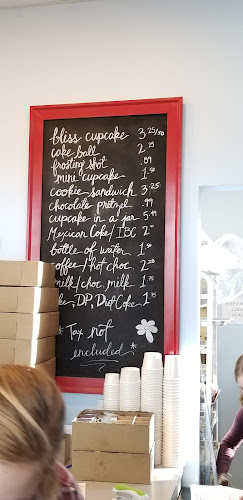 bliss cupcake 3.25/ea
cake ball 2.25
frosting shot .89
mini cupcake 1.50
cookie sandwich 3.25
chocolate pretzel .99
cupcake in a jar 5.49
Mexican Coke/IBC 2.-
bottle of water 1.50
coffee/hot choc. 2.00
milk/choc milk 1.75
ke, DP, Diet Coke 1.75
*Tax not
included*